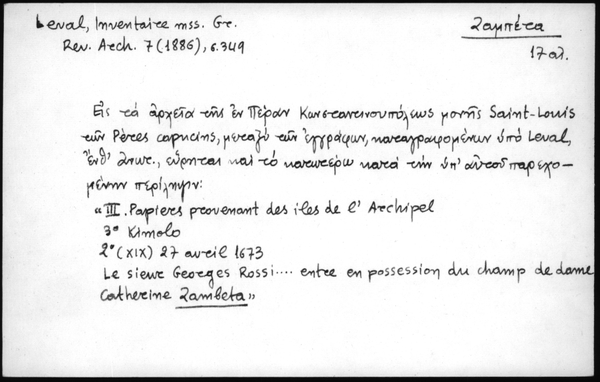 Leval, Inventaire mss. Gr.
Rev. Arch. 7 (1886), σ. 349
Ζαμπέτα
17 αἰ.
Εἰς τά ἀρχεῖα τῆς ἐν Πέραν Κωνσταντινουπόλεως μονῆς Saint-Louis
τῶν Pères capucins, μεταξύ τῶν ἐγγράφων, καταγραφομένων ὑπό Leval,
ἔνθ' ἀνωτ., εὕρηται καί τό κατωτέρω κατά τήν ὑπ' αὐτοῦ παρεχο-
μένην περίληψιν:
« III. Papiers provenant des îles de l' Archipel
3° Kimolo
2° (XIX) 27 avril 1673
Le sieur Georges Rossi.... entre en possession du champ de dame
Catherine Zambeta »